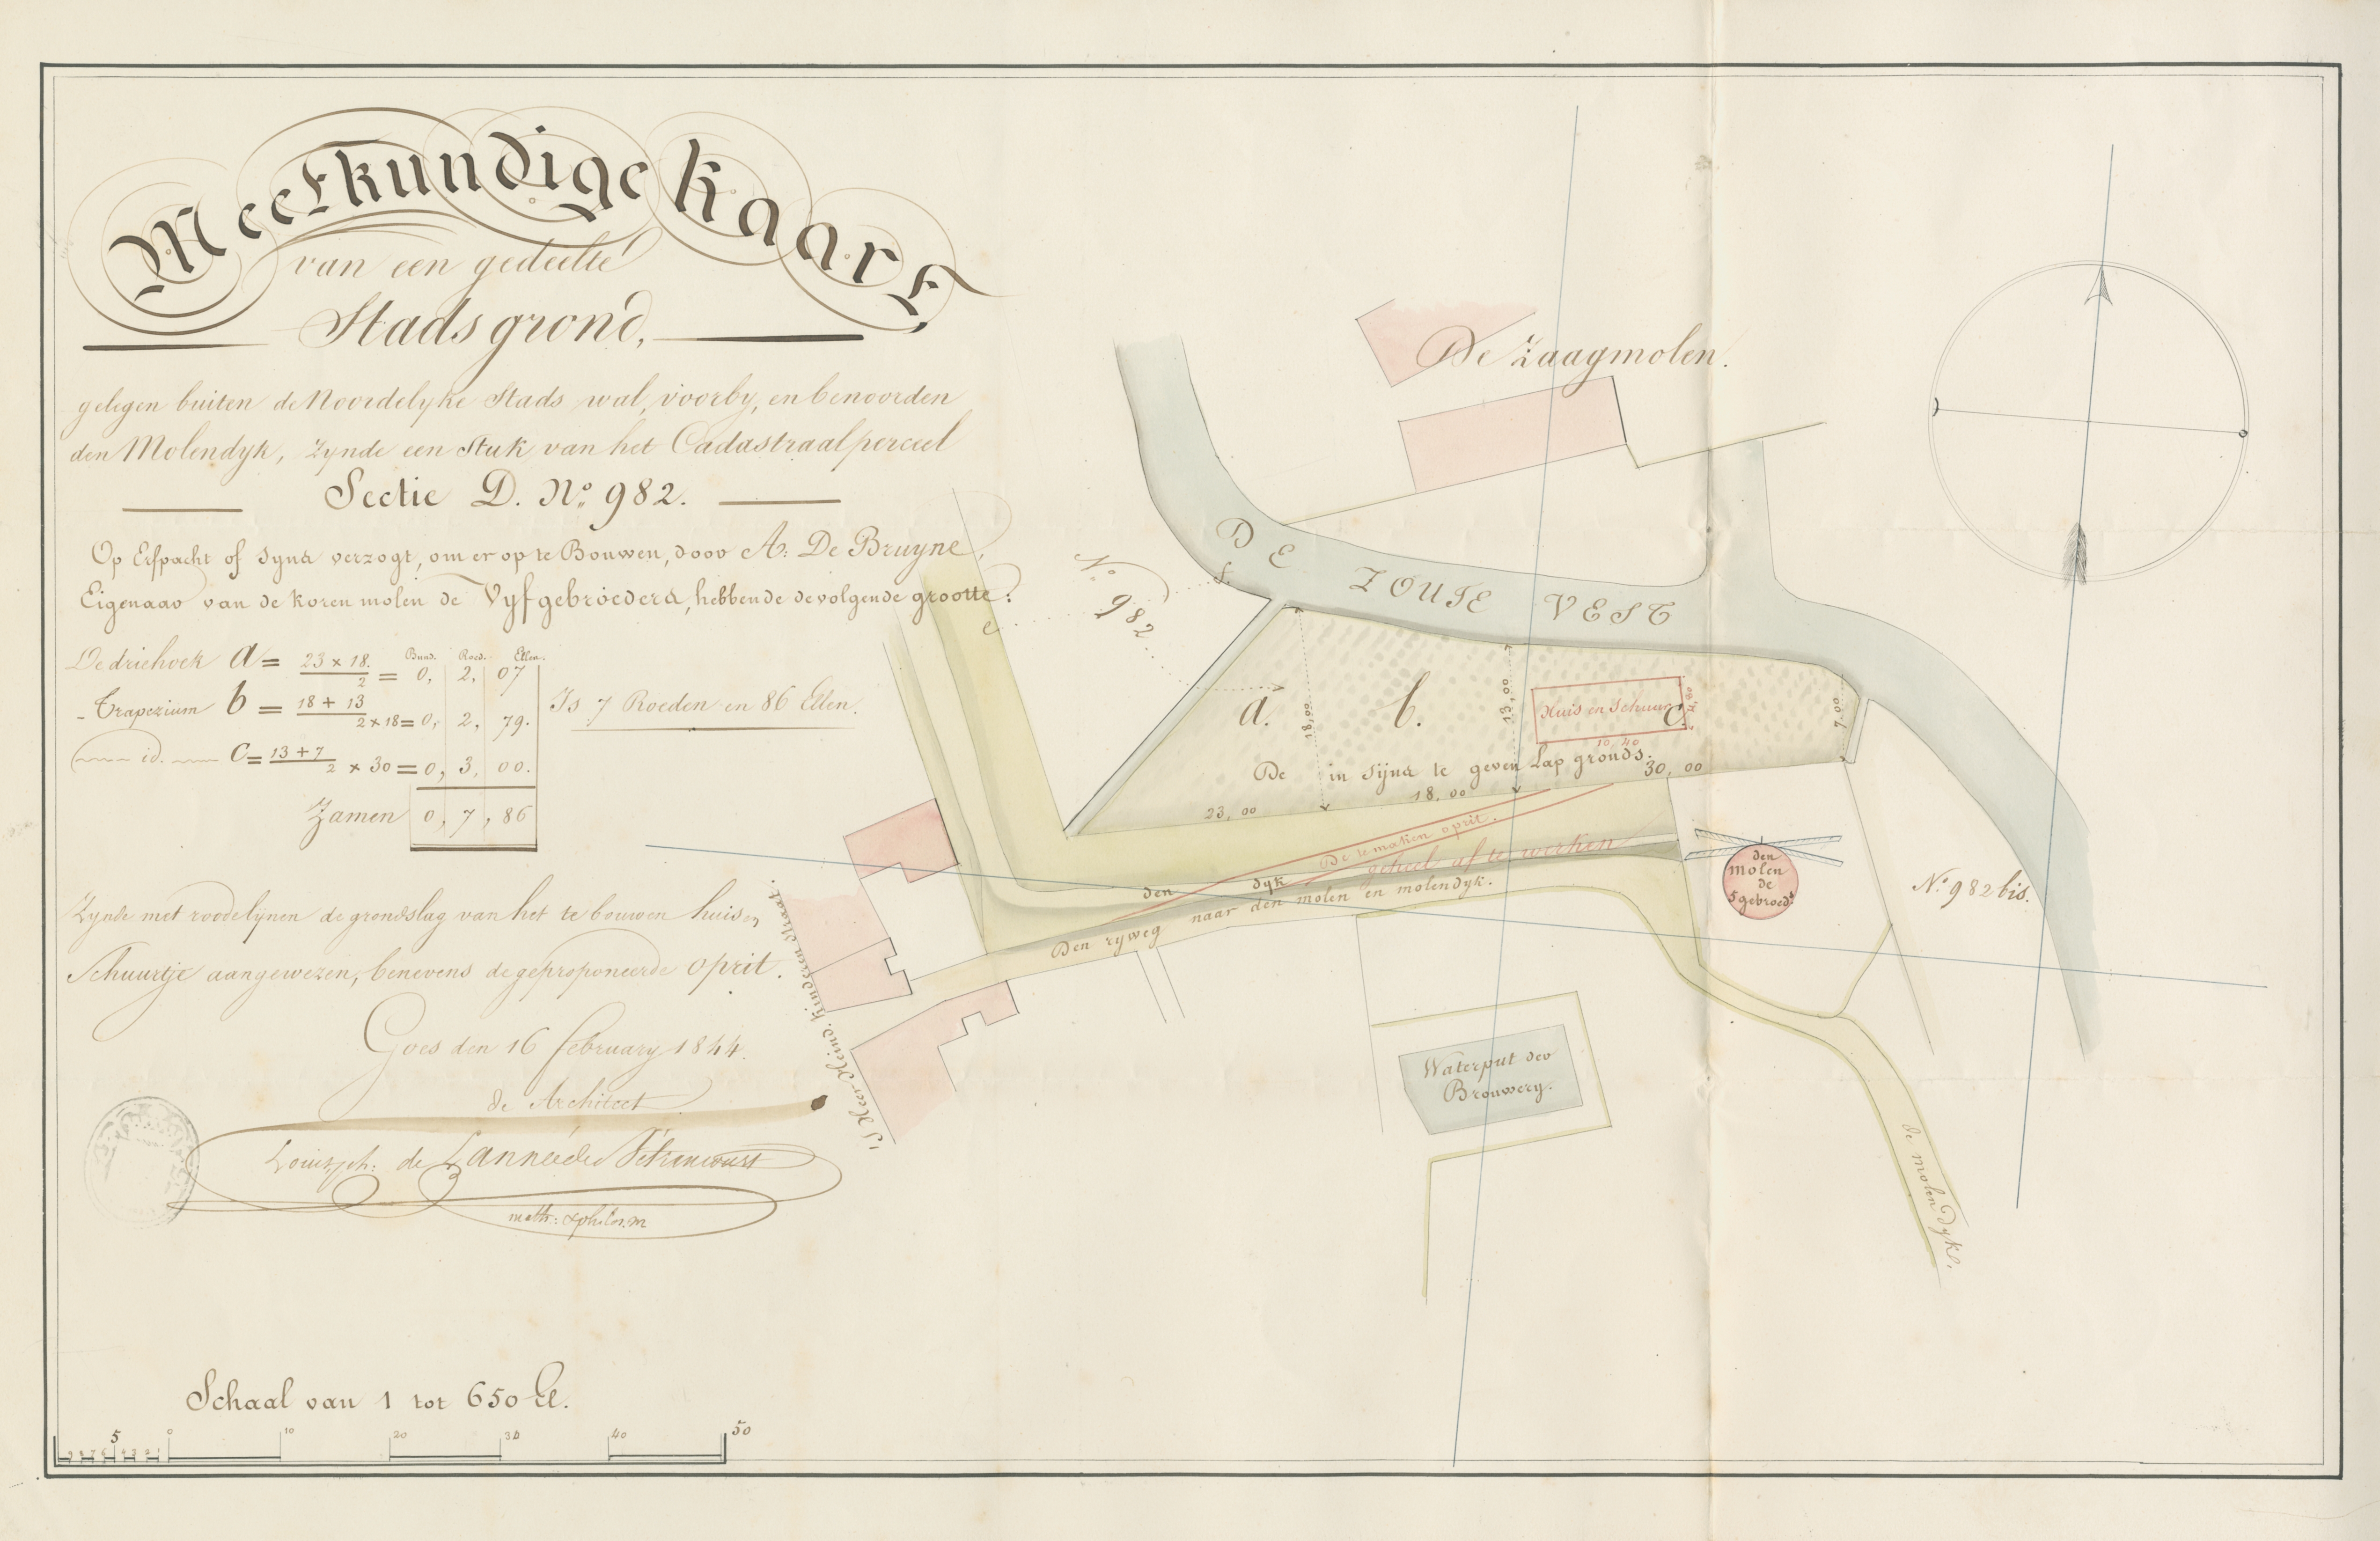 Meetkundige kaart
van een gedeelte
Stads grond,
gelegen buiten de Noordelyke Stads wal, voorby, en benoorden
den Molendyk, zynde een Stuk van het Cadastraal perceel
Sectie D. No. 982.
Op Erfpacht of Cyns verzogt, om er op te Bouwen, door A: De Bruyne,
Eigenaar van de koren molen de Vyf gebroeders, hebbende de volgende grootte:
De driehoek a = 23 x 18. / 2 = 0, 2, 07
Bund. Roed. Ellen.
- Trapezium b = 18 + 13 / 2 x 18 = 0, 2, 79.
id. c = 13 + 7 / 2 x 30 = 0, 3, 00.
Zamen 0, 7, 86
Is 7 Roeden en 86 Ellen.
Zynde met roode lijnen de grondslag van het te bouwen huis en
Schuurtje aangewezen, benevens de geproponeerde oprit.
Goes den 16 february 1844.
de Architect
de Lannée de Betrancourt
math: & philos. m
Schaal van 1 tot 650 El.
9 8 7 6 5 4 3 2 1 0 10 20 30 40 50
De Zaagmolen.
DE ZOUTE VEST
No. 982
f.
e
a.
b.
c
18,00
13,00
7,00
Huis en Schuur
10,40
De in Cijns te geven Lap gronds.
23,00
18,00
30,00
De te maken oprit.
geheel af te werken
den dyk
Den ryweg naar den molen en molendyk.
den
molen
de
5 gebroeds.
No. 982 bis.
Waterput der
Brouwery.
de molen dyk.
's Heer Heind. kinderen straat.